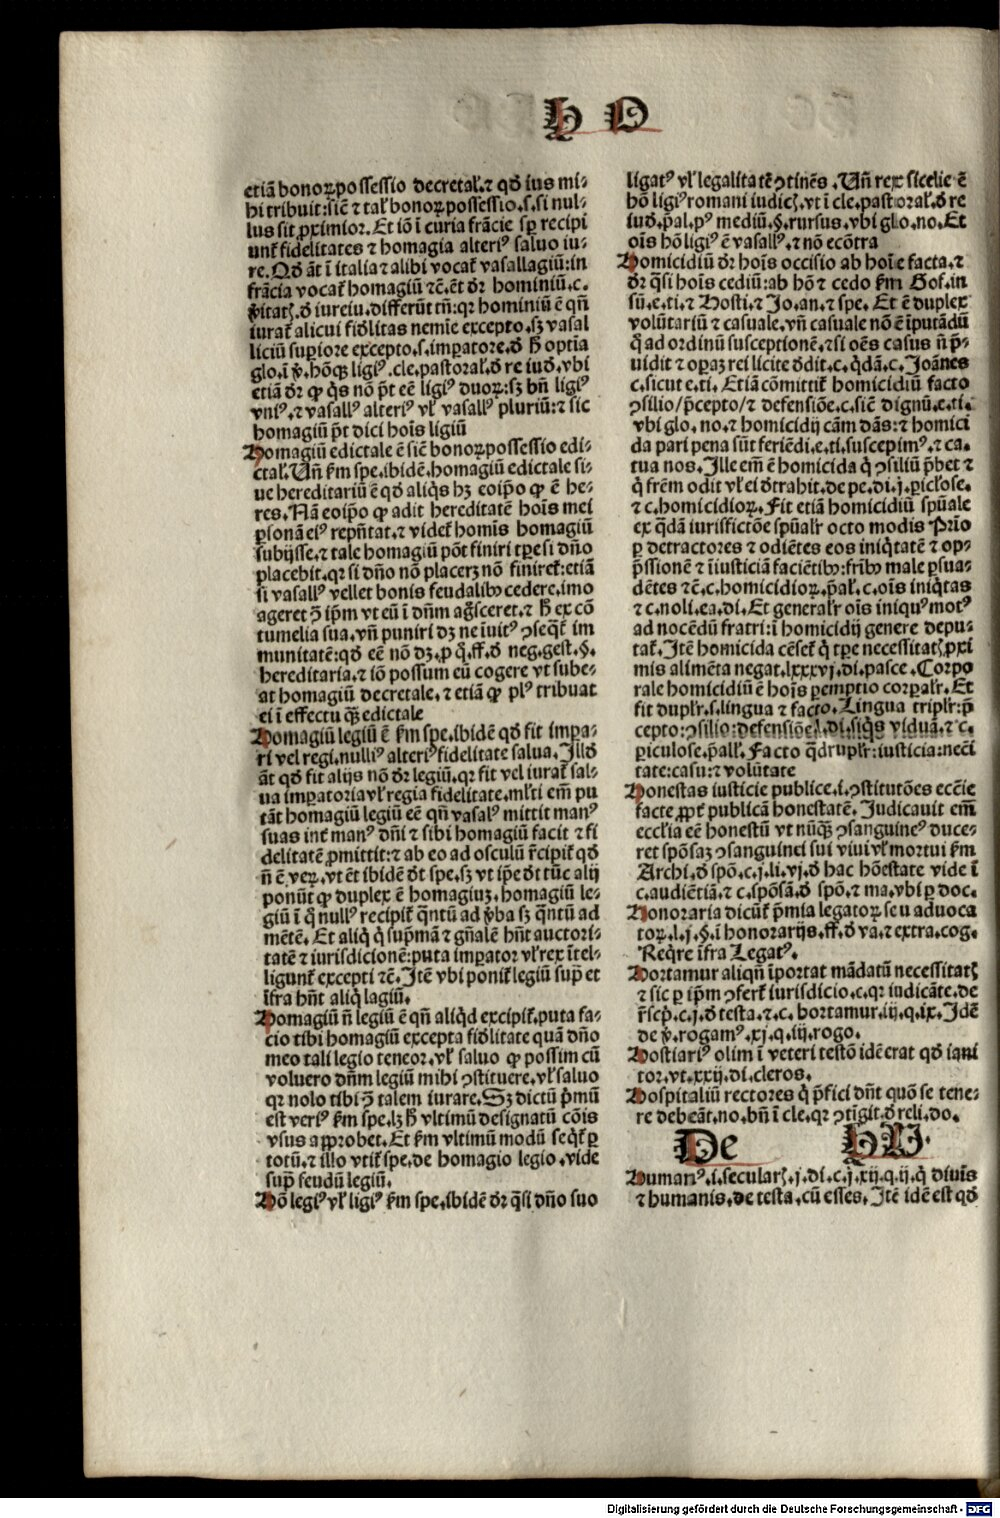 H O
etiā bonoꝝ possessio decretał.⁊ qđ ius mi⸗
hi tribuit:siē ⁊ tał bonoꝝ possessio.s.si nul⸗
lus sit ꝓximior. Et iō ī curia frācie sꝑ recipi
unt᷑ fidelitates ⁊ homagia alteriꝰ saluo iu⸗
re. Qđ āt ī italia ⁊ alibi vocat᷑ vasallagiū:in
frācia vocat᷑ homagiū ⁊ē.ēt dr̄ hominiū.c.
v̓itatꝭ.đ iureiu.differūt tn̄:qr hominiū ē qn̄
iurat᷑ alicui fiđlitas nemīe excepto.sꝫ vasal
liciū supiore excepto.s.impatore.đ h̄ optīa
glo.ī v̓.hōqꝫ ligiꝰ.cle.pastorał.đ re iuđ.vbi
etiā dr̄ ꝙ q̇s nō pt̄ eē ligiꝰ duoꝝ:sꝫ bn̄ ligiꝰ
vniꝰ.⁊ vasallꝰ alteriꝰ vł vasallꝰ pluriū:⁊ sic
homagiū pt̄ dici hoīs ligiū
Homagiū edictale ē siē bonoꝝ possessio edi⸗
ctał.Vn̄ km̄ spe.ibidē.homagiū edictale si⸗
ue hereditariū ē qđ aliq̇s hꝫ eoip̄o ꝙ ē he⸗
res.Nā eoip̄o ꝙ adit hereditatē hoīs mei
ꝑsonā eiꝰ rep̄n̄tat.⁊ videt᷑ homīs homagiū
subijsse.⁊ tale homagiū pōt finiri tp̄e si dn̄o
placebit.qr si dn̄o nō placerꝫ nō finiret᷑:etiā
si vasallꝰ vellet bonis feudalibꝰ cedere.imo
ageret ꝯ̄ ip̄m vt eū ī dn̄m ag̅sceret.⁊ h̄ ex cō
tumelia sua.vn̄ puniri dꝫ ne īuitꝰ ꝯseq̄t᷑ im
munitatē:qđ eē nō dꝫ.ꝓ q̇.ff.đ neg.gest.§.
hereditaria.⁊ iō possum eū cogere vt sube⸗
at homagiū decretale.⁊ etiā ꝙ plꝰ tribuat
ei ī effectu q̄ꝫ edictale
Homagiū legiū ē km̄ spe.ibidē qđ fit impa⸗
ri vel regi.nulliꝰ alteriꝰ fidelitate salua.Illđ
āt qđ fit alijs nō dr̄ legiū.qr fit vel iurat᷑ sal⸗
ua impatoria vł regia fidelitate.ml̓ti em̄ pu
tāt homagiū legiū eē qn̄ vasalꝰ mittit manꝰ
suas int᷑ manꝰ dn̄i ⁊ sibi homagiū facit ⁊ fi
delitatē ꝓmittit:⁊ ab eo ad osculū r̄cipit᷑ qđ
n̄ ē veꝝ.vt ēt ibidē đt spe.sꝫ vt ip̄e đt tūc alij
ponūt ꝙ duplex ē homagiuꝫ.homagiū le⸗
giū ī q̇ nullꝰ recipit᷑ q̄ntū ad v̓ba sꝫ q̄ntū ad
mētē. Et aliq̇ q̇ sup̄mā ⁊ gn̄alē hn̄t auctori⸗
tatē ⁊ iurisdicionē:puta impator vł rex ītel⸗
ligunt᷑ excepti ⁊ē.Itē vbi ponit᷑ legiū sup̄ et
īfra hn̄t aliq̇ lagiū.
Homagiū n̄ legiū ē qn̄ aliq̇d excipit᷑.puta fa⸗
cio tibi homagiū excepta fiđlitate quā dn̄o
meo tali legio teneor.vł saluo ꝙ possim cū
voluero dn̄m legiū mihi ꝯstituere.vł saluo
qr nolo tibi ꝯ̄ talem iurare.Sꝫ dictū p̄mū
est veriꝰ km̄ spe.lꝫ h̄ vltimū designatū cōis
vsus approbet.Et km̄ vltimū modū seq̄t᷑ ꝑ
totū.⁊ illo vtit᷑ spe.de homagio legio.vide
sup̄ feudū legiū.
Hō legiꝰ vł ligiꝰ km̄ spe.ibidē dr̄ q̄si dn̄o suo
ligatꝰ vł legalitatē ꝯtinēs.Vn̄ rex sicelie ē
hō ligiꝰ romani iudicꝭ.vt ī cle.pastoral.đ re
iuđ.p̄al.pꝰ mediū.§.rursus.vbi glo.no.Et
oīs hō ligiꝰ ē vasallꝰ.⁊ nō ecōtra
Homicidiū dr̄ hoīs occisio ab hoīe facta.⁊
dr̄ q̄si hoīs cediū:ab hō ⁊ cedo km̄ Gof.in
sū.e.ti.⁊ Hosti.⁊ Jo.an.⁊ spe. Et ē duplex
volūtariū ⁊ casuale.vn̄ casuale nō ē īputādū
q̇ ad ordinū susceptionē.⁊ si oēs casus n̄ p̄⸗
uidit ⁊ opaꝫ rei licite đdit.c.q̇dā.c.Joānes
c.sicut e.ti. Etiā cōmittit᷑ homicidiū facto
ꝯsilio/p̄cepto/⁊ defensiōe.c.siē dignū.e.ti.
vbi glo.no.⁊ homicidij cām dās:⁊ homici
da pari pena sūt feriēdi.e.ti.suscepimꝰ.⁊ ca.
tua nos.Ille em̄ ē homicida q̇ ꝯsiliū p̄bet ⁊
q̇ frēm odit vł ei đtrahit.de pe.di.j.periclōse.
⁊ c.homicidioꝝ.Fit etiā homicidiū spūale
ex q̄dā iurisfictōe spūalr̄ octo modis Prīo
ꝑ detractores ⁊ odiētes eos iniq̇tatē ⁊ op⸗
p̄ssionē ⁊ īiusticiā faciētibꝰ:frībꝰ male ꝑsua⸗
dētes ⁊ē.c.homicidioꝝ.p̄ał.c.oīs iniq̇tas
⁊ c.noli.ea.di.Et generalr̄ oīs iniquꝰ motꝰ
ad nocēdū fratri:ī homicidij genere depu⸗
tat᷑.Itē homicida cēset᷑ q̇ tp̄e necessitatꝭ ꝓxi
mis alimēta negat.lxxxvj.di.pasce.Corpo
rale homicidiū ē hoīs ꝑemptio corꝑalr̄.Et
fit duplr̄.s.lingua ⁊ facto.Lingua triplr̄:p̄
cepto:ꝯsilio:defensiōe.l.di.siq̇s viduā.⁊ c.
ꝑiculose.p̄all.Facto q̄druplr̄:iusticia:neci
tate:casu:⁊ volūtate
Honestas iusticie publice.i.ꝯstitutōes eccīe
facte ꝓpt᷑ publicā honestatē. Judicauit em̄
eccl̓ia eē honestū vt nūq̄ꝫ ꝯsanguineꝰ duce⸗
ret spōsaꝫ ꝯsanguinei sui viui vł mortui km̄
Archi.đ spō.c.j.li.vj.đ hac hōestate vide ī
c.audiētiā.⁊ c.spōsā.đ spō.⁊ ma.vbi ꝑ doc.
Honoraria dicūt᷑ p̄mia legatoꝝ seu aduoca
toꝝ.l.j.§.ī honorarijs.ff.đ va.⁊ extra.cog.
Reqre īfra Legatꝰ.
Hortamur aliqn̄ īportat mādatū necessitatꝭ
⁊ sic ꝑ ip̄m ꝯfert᷑ iurisdicio.c.qr iudicāte.de
r̄scp̄.c.j.đ testa.⁊.c. hortamur.iij.q.ix.Idē
de v̓.rogamꝰ.xj.q.iij.rogo.
Hostiariꝰ olim ī veteri testō idē erat qđ iani
tor.vt.xxij.di.cleros.
Hospitaliū rectores q̇ p̄fici dn̄t quō se tene⸗
re debeāt.no.bn̄ ī cle.qr ꝯtīgit.đ reli.do.
De HV.
Humanꝰ.i.secularꝭ.j.di.c.j.xij.q.ij.q̇ diuīs
⁊ humanis.de testa.cū esses.Itē idē est qđ
Digitalisierung gefördert durch die Deutsche Forschungsgemeinschaft - DFG